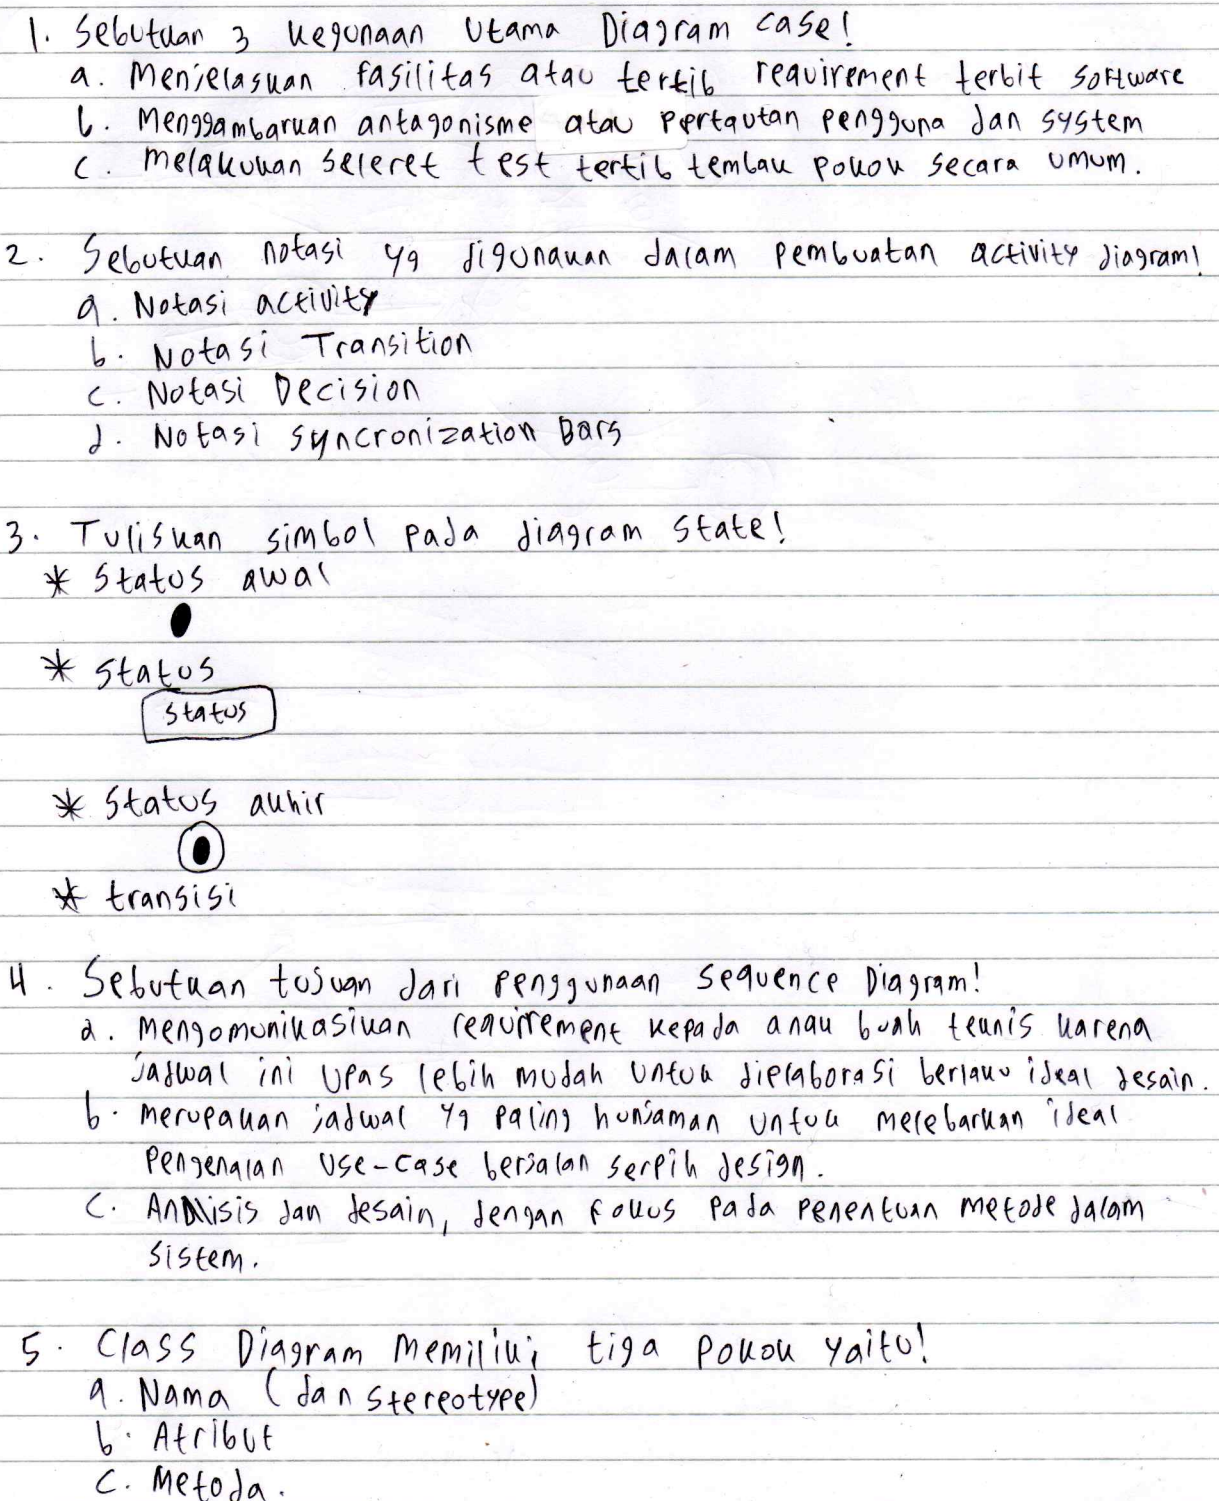 1. Sebutkan 3 kegunaan Utama Diagram case!
a. Menjelaskan fasilitas atau tertib requirement terbit software
b. Menggambarkan antagonisme atau pertautan pengguna dan system
c. melakukan seleret test tertib tembak pokok secara umum.
2. Sebutkan notasi yg digunakan dalam pembuatan activity diagram!
a. Notasi activity
b. Notasi Transition
c. Notasi Decision
d. Notasi syncronization Bars
3. Tuliskan simbol pada diagram state!
* Status awal
* Status
Status
* Status akhir
* transisi
4. Sebutkan tujuan dari penggunaan sequence Diagram!
a. mengomunikasikan requirrement kepada anak buah teknis karena
jadwal ini upas lebih mudah untuk dielaborasi berlaku ideal desain.
b. merupakan jadwal yg paling hunjaman untuk melebarkan ideal
pengenalan use-case berjalan serpih design.
c. Analisis dan desain, dengan fokus pada penentuan metode dalam
sistem.
5. Class Diagram memiliki tiga pokok yaitu!
a. Nama (dan stereotype)
b. Atribut
c. Metoda.